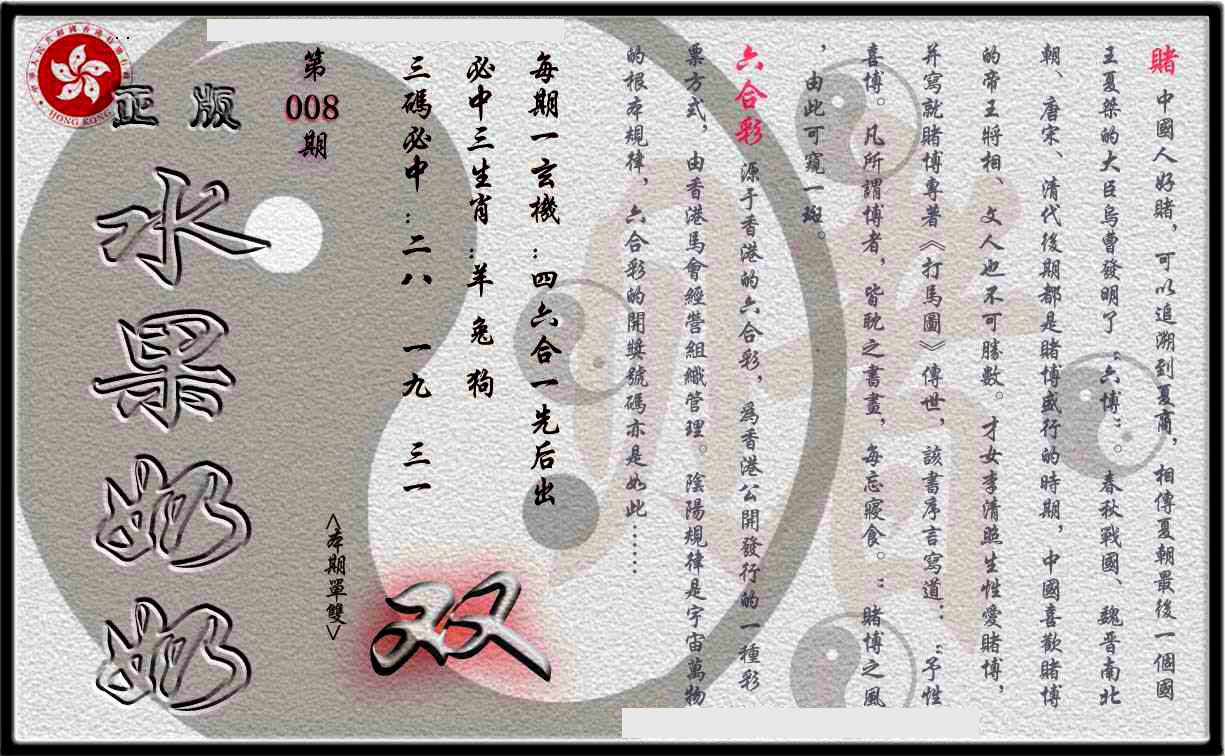 賭 中國人好賭，可以追溯到夏商，相傳夏朝最後一個國
王夏桀的大臣烏曹發明了“六博”。春秋戰國、魏晋南北
朝、唐宋、清代後期都是賭博盛行的時期，中國喜歡賭博
的帝王將相、文人也不可勝數。才女李清照生性愛賭博，
并寫就賭博專著《打馬圖》傳世，該書序言寫道：“予性
喜博。凡所謂博者，皆耽之書畫，每忘寢食。：賭博之風
，由此可窺一斑。
六合彩 源于香港的六合彩，爲香港公開發行的一種彩
票方式，由香港馬會經營組織管理。陰陽規律是宇宙萬物
的根本規律，六合彩的開獎號碼亦是如此……
每期一玄機：四六合一先后出
必中三生肖：羊 兔 狗
三碼必中：二八 一九 三一
双
<本期單雙>
第
008
期
正版
水果奶奶
HONG KONG